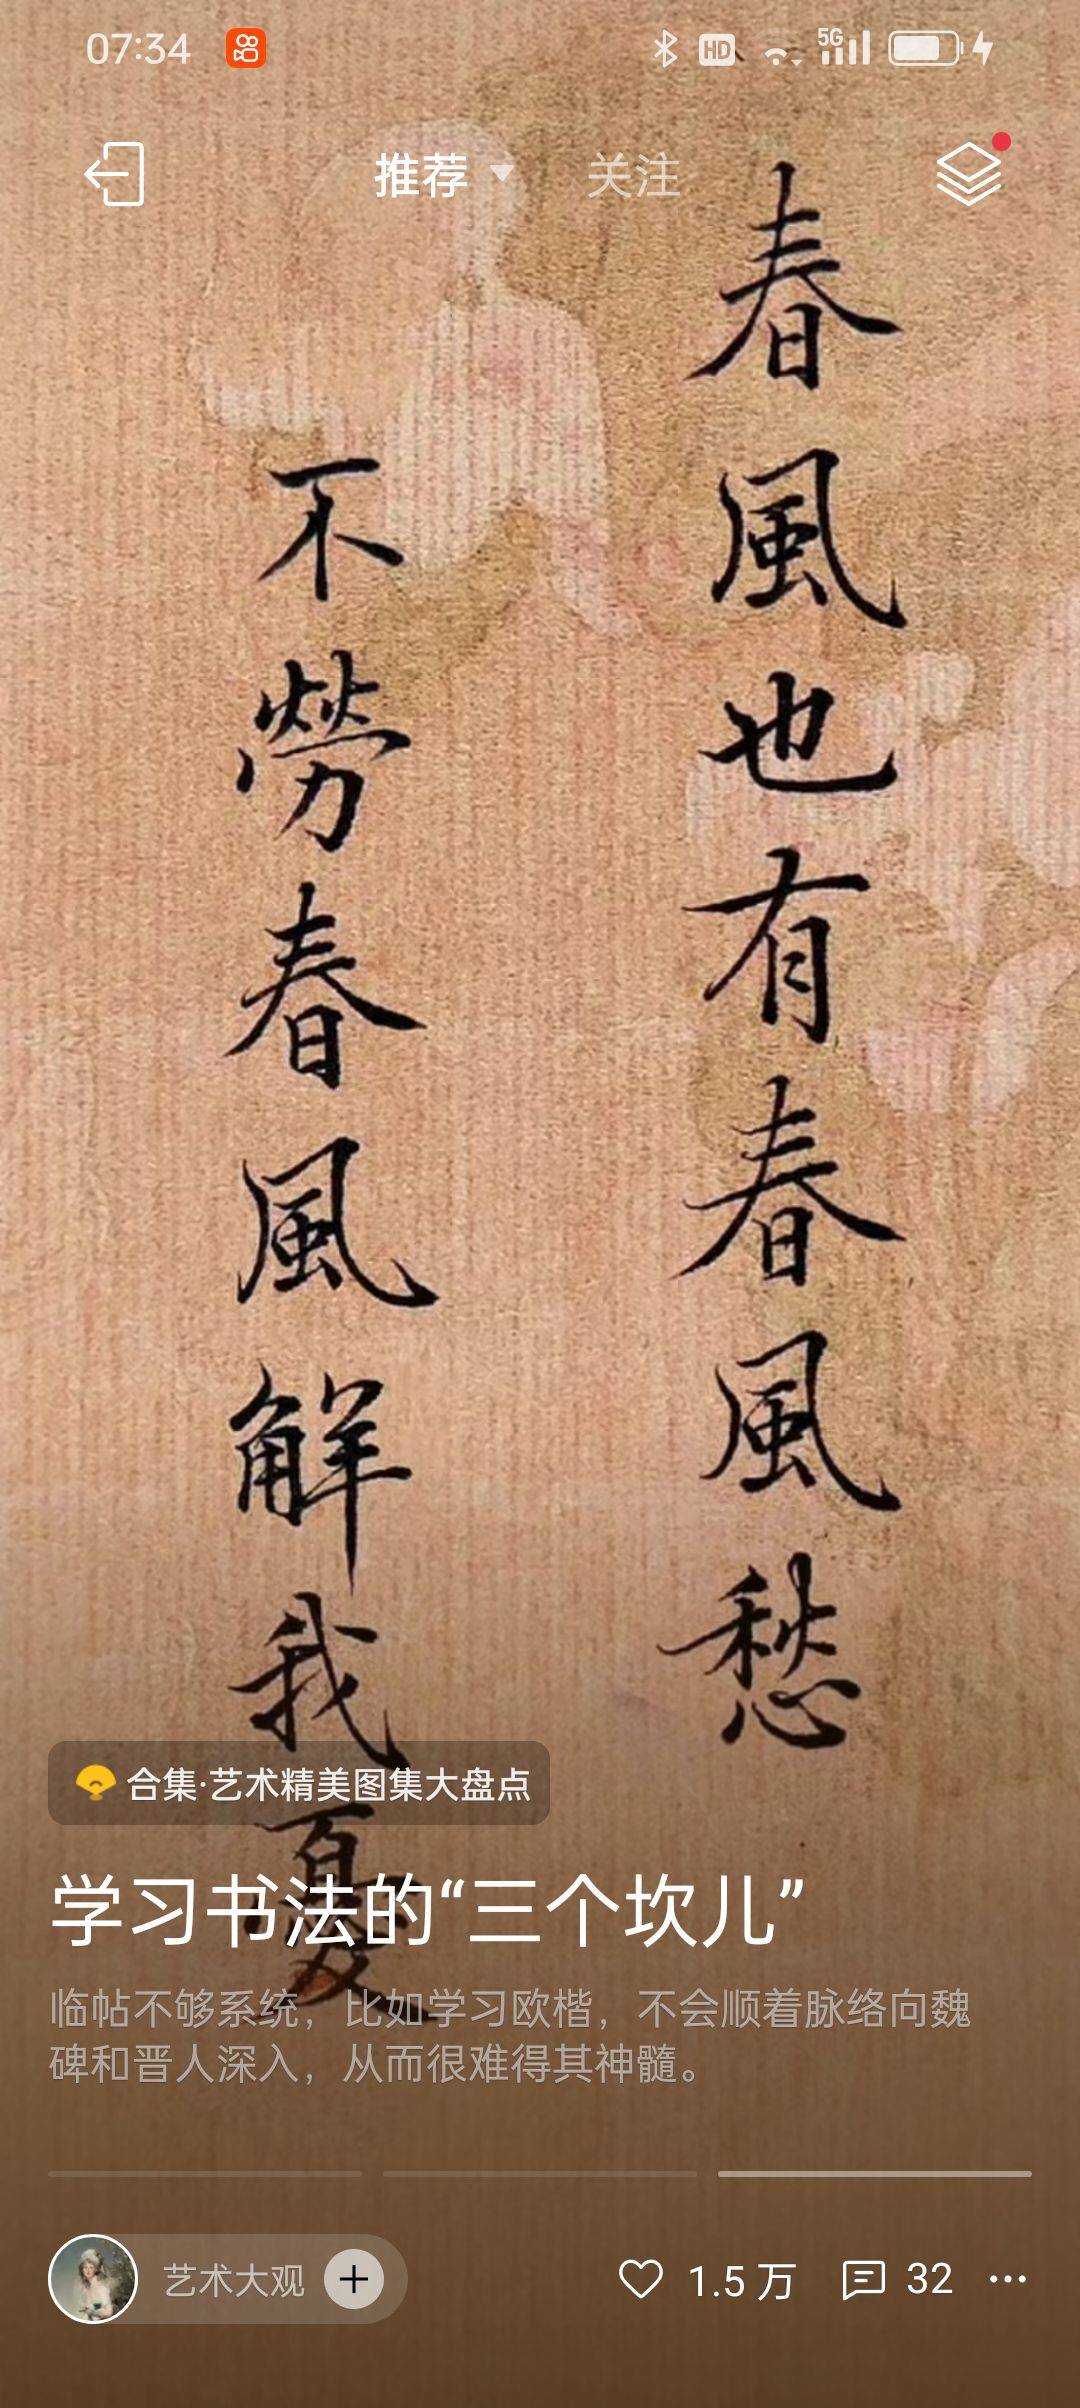 07:34
HD
5G
推荐
关注
春風也有春風愁
不勞春風解我憂
合集·艺术精美图集大盘点
学习书法的“三个坎儿”
临帖不够系统，比如学习欧楷，不会顺着脉络向魏
碑和晋人深入，从而很难得其神髓。
艺术大观
1.5 万
32